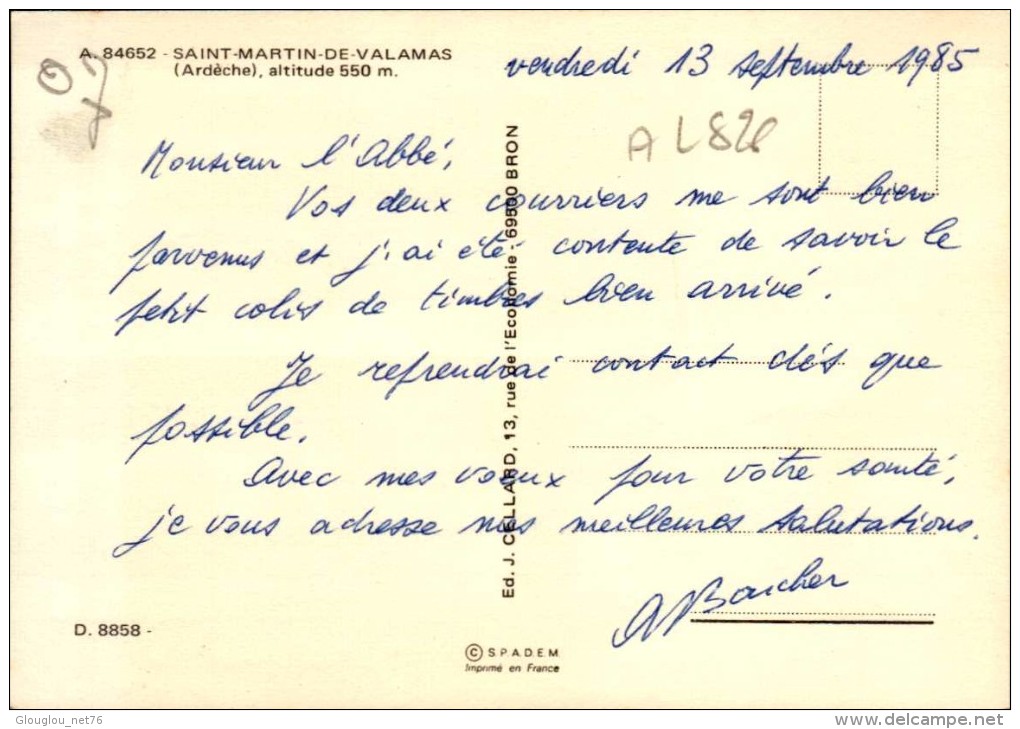 A. 84652 - SAINT-MARTIN-DE-VALAMAS
(Ardèche), altitude 550 m.
vendredi 13 septembre 1985
07
AL 828
Monsieur l'Abbé,
Vos deux courriers me sont bien
parvenus et j'ai été contente de savoir le
petit colis de timbres bien arrivé.
Je reprendrai contact dès que
possible.
Avec mes voeux pour votre santé,
je vous adresse mes meilleures salutations.
Ed. J. CELLARD, 13, rue de l'Economie - 69500 BRON
D. 8858 -
© S.P.A.D.E.M
Imprimé en France
Glouglou_net76
www.delcampe.net